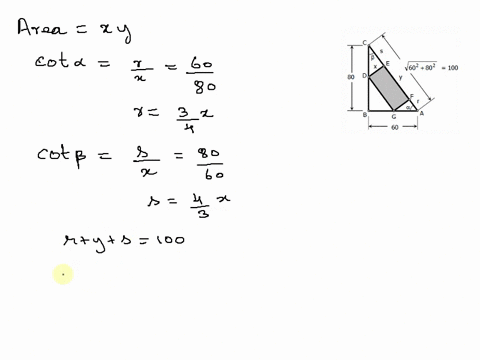 Area = x y
cot α = r/x = 60/80
r = 3/4 x
cot β = s/x = 80/60
s = 4/3 x
r + y + s = 100
C
s
β
x
E
√60² + 80² = 100
80
D
y
F
r
α
B
G
A
60